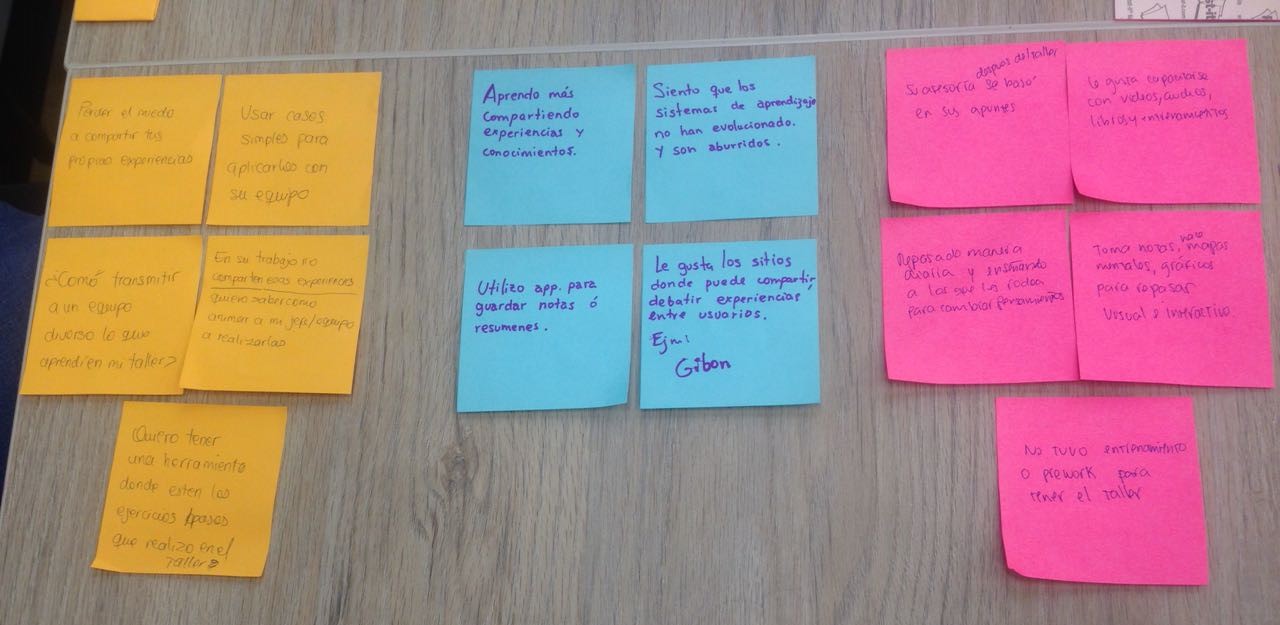 Perder el miedo
a compartir tus
propias experiencias
Usar casos
simples para
aplicarlos con
su equipo
¿Comó transmitir
a un equipo
diverso lo que
aprendí en mi taller?
En su trabajo no
comparten esas experiencias
quiero saber como
animar a mi jefe/equipo
a realizarlas
Quiero tener
una herramienta
donde esten los
ejercicios /pasos
que realizo en el
taller?
Aprendo más
compartiendo
experiencias y
conocimientos.
Siento que los
sistemas de aprendizaje
no han evolucionado.
y son aburridos.
Utilizo app. para
guardar notas ó
resumenes.
Le gusta los sitios
donde puede compartir,
debatir experiencias
entre usuarios.
Ejm:
Gibon
despues del taller
Su asesoría se basó
en sus apuntes
Le gusta capacitarse
con videos, audios,
libros y entrenamientos
Repasando manera
diaria y enseñando
a los que los rodea
para cambiar pensamientos
Toma notas, hace mapas
mentales, gráficos
para repasar
Visual e interactivo.
No tuvo entrenamiento
o prework para
tener el taller